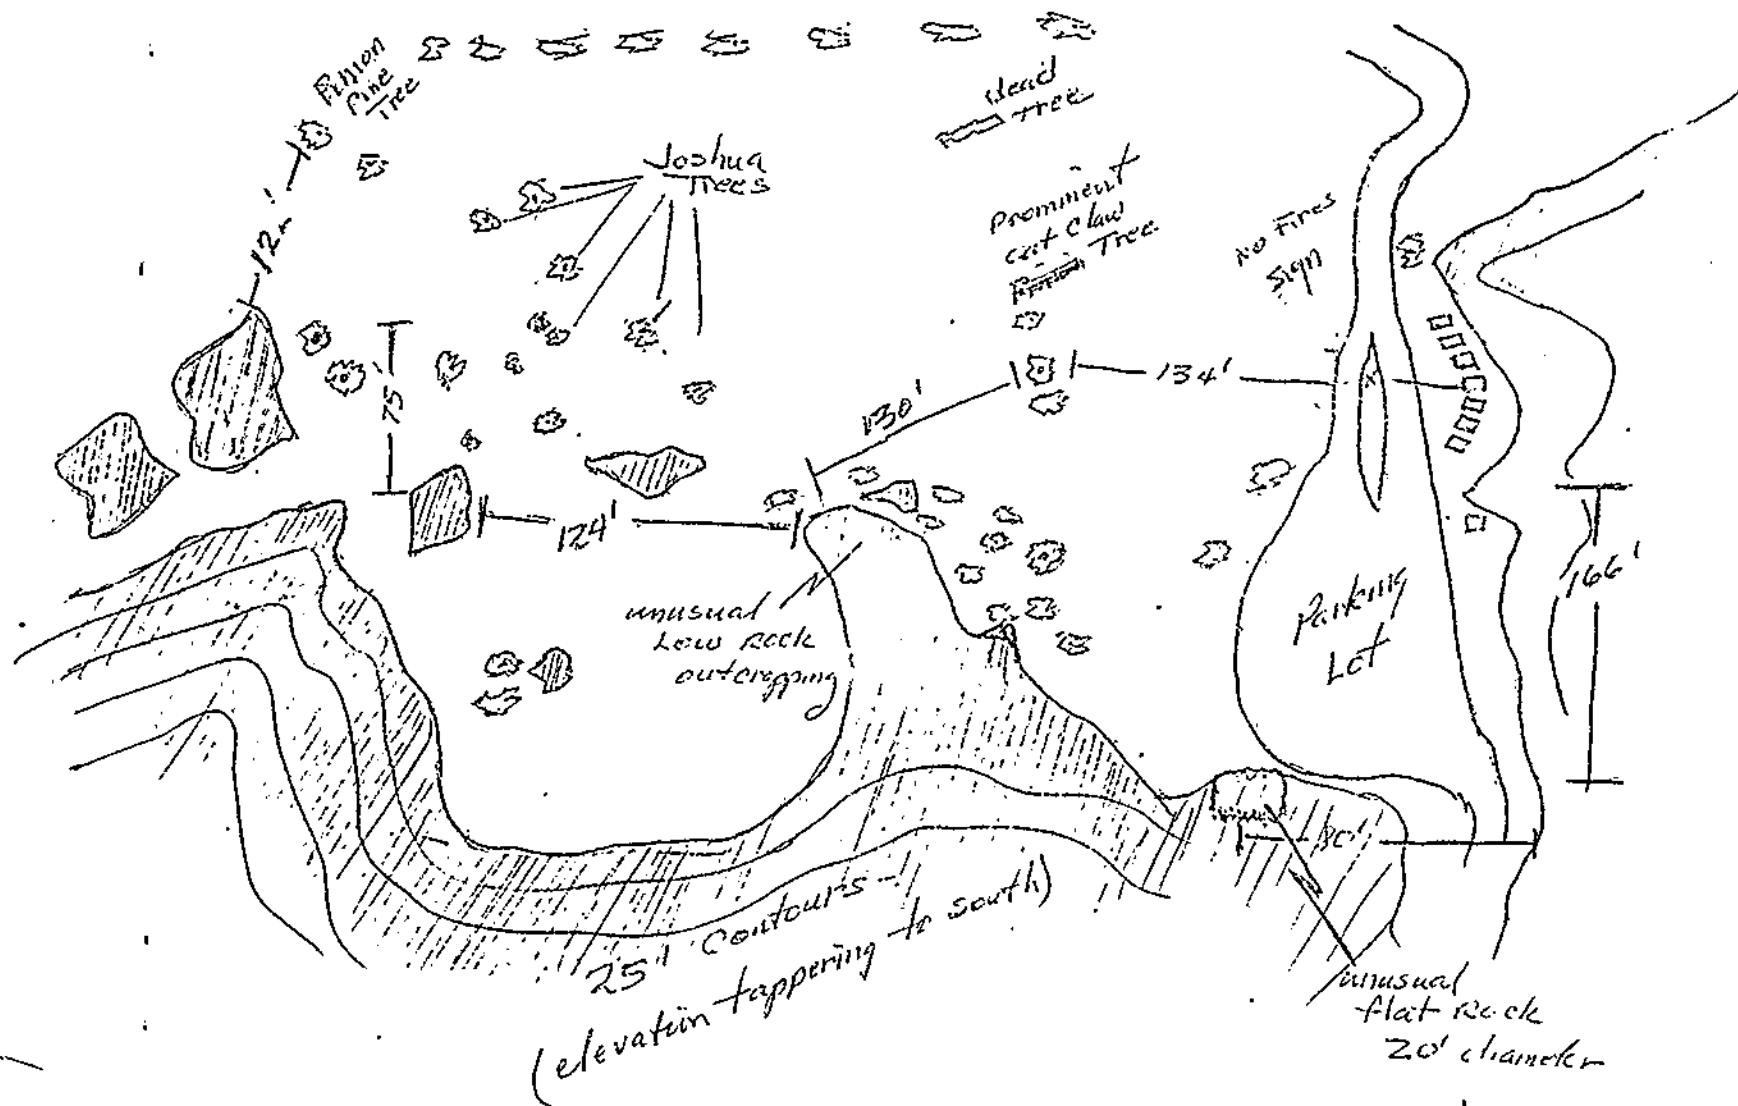 Pinion
Pine
Tree
Dead
Tree
Joshua
Trees
Prominent
Cat Claw
Tree
No Fires
Sign
12'
75'
130'
134'
124'
166'
unusual
Low Rock
outcropping
Parking
Lot
80'
25' Contours -
(elevation tappering to south)
unusual
flat Rock
20' diameter